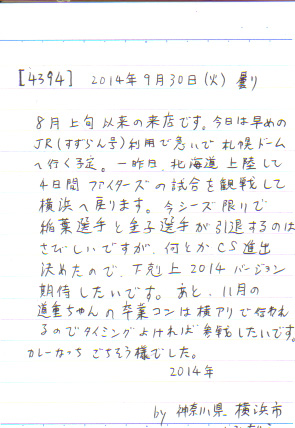 [4394] 2014年9月30日(火) 曇り
8月上旬以来の来店です。今日は早めの
JR(すずらん号)利用で急いで札幌ドーム
へ行く予定。一昨日、北海道上陸して
4日間ファイターズの試合を観戦して
横浜へ戻ります。今シーズン限りで
稲葉選手と金子選手が引退するのは
さびしいですが、何とかCS進出
決めたので、下剋上2014バージョン
期待したいです。あと、11月の
道重ちゃんの卒業コンは横アリで行われ
るのでタイミングよければ参戦したいです。
カレーなっち ごちそう様でした。
2014年
by 神奈川県 横浜市